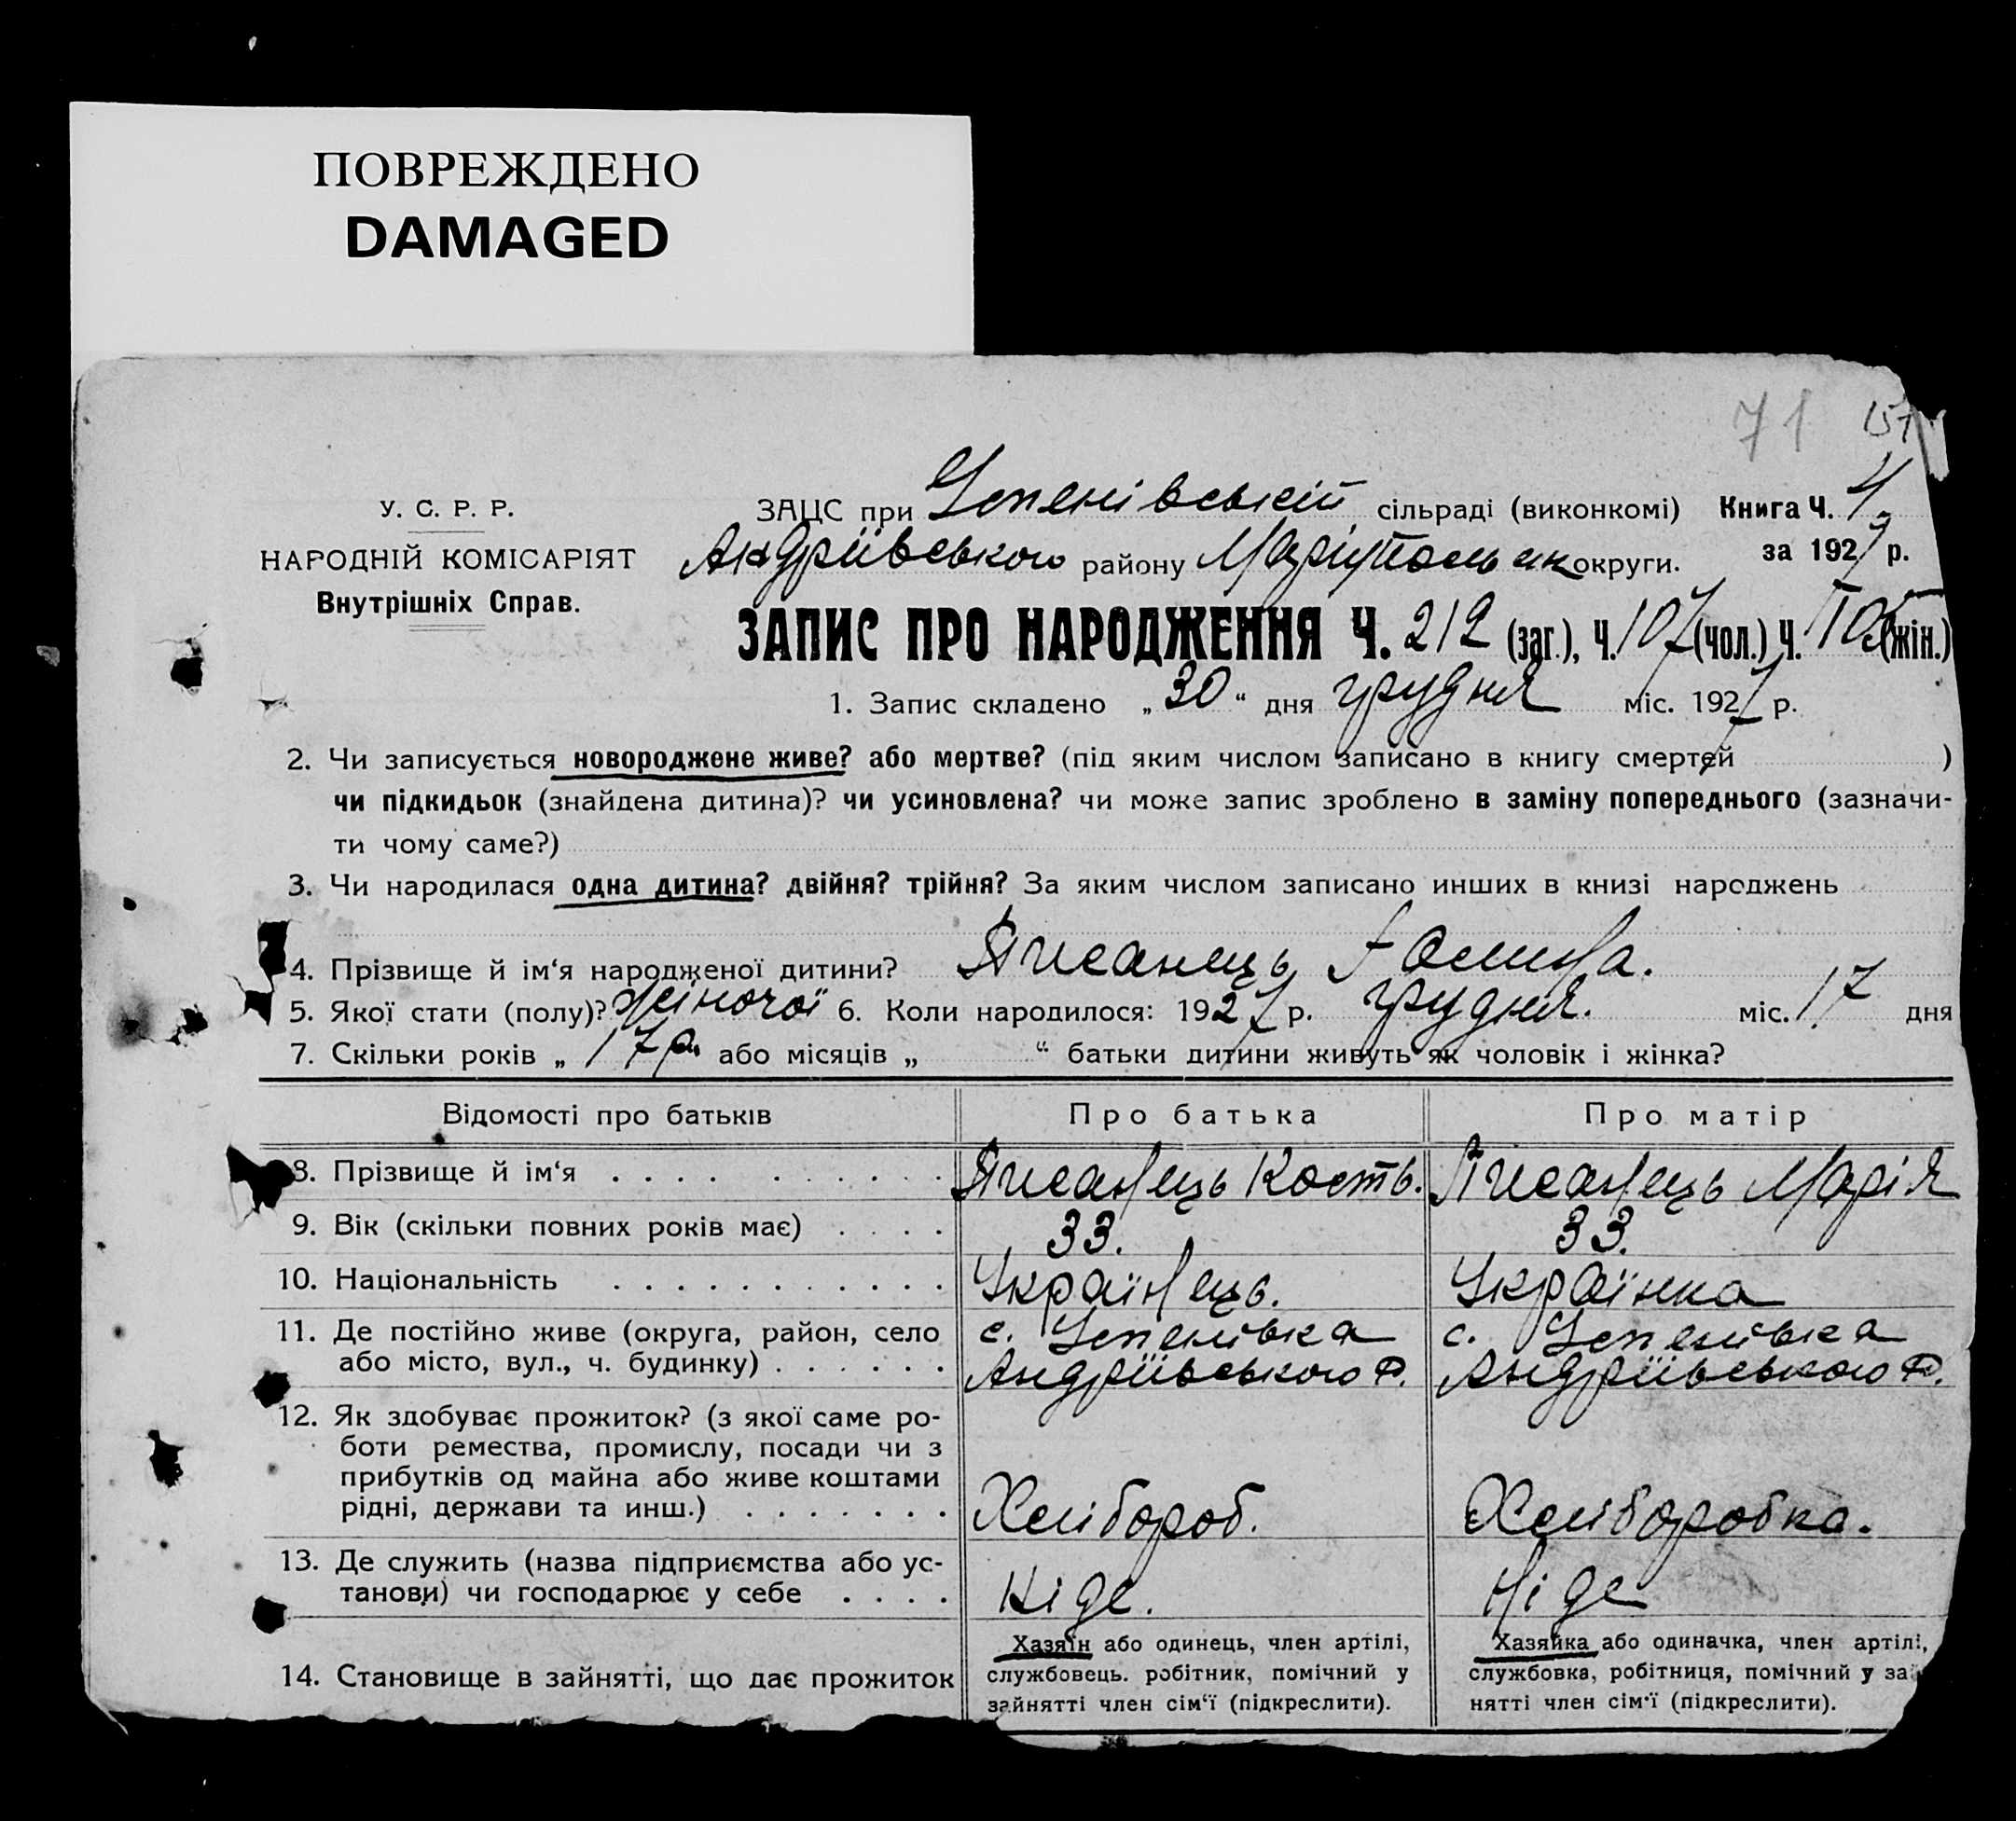 ПОВРЕЖДЕНО
DAMAGED
71 157
У. С. Р. Р.
НАРОДНІЙ КОМІСАРІЯТ
Внутрішніх Справ.
ЗАЦС при Успенівській сільраді (виконкомі) Книга Ч. 4
Андріівського району Маріупольськ округи. за 1927 р.
ЗАПИС ПРО НАРОДЖЕННЯ Ч. 212 (заг.), Ч. 107 (чол.) Ч. 105 (жін.)
1. Запис складено „30“ дня грудня міс. 1927 р.
2. Чи записується новороджене живе? або мертве? (під яким числом записано в книгу смертей )
чи підкидьок (знайдена дитина)? чи усиновлена? чи може запис зроблено в заміну попереднього (зазначи-
ти чому саме?)
3. Чи народилася одна дитина? двійня? трійня? За яким числом записано инших в книзі народжень
4. Прізвище й ім‘я народженої дитини? Писанець
5. Якої стати (полу)? жіночої 6. Коли народилося: 1927 р. грудня. міс. 17 дня
7. Скільки років „ 17 р. або місяців „ “ батьки дитини живуть як чоловік і жінка?
Відомості про батьків Про батька Про матір
8. Прізвище й ім‘я Писанець Кость. Писанець Марія
9. Вік (скільки повних років має) 33. 33.
10. Національність Українець. Українка
11. Де постійно живе (округа, район, село с. Успенівка с. Успенівка
або місто, вул., ч. будинку) Андріївського Р. Андріївського Р.
12. Як здобуває прожиток? (з якої саме ро-
боти ремества, промислу, посади чи з
прибутків од майна або живе коштами
рідні, держави та инш.) Хлібороб. Хліборобка.
13. Де служить (назва підприємства або ус-
танови) чи господарює у себе Ніде. Ніде
14. Становище в зайнятті, що дає прожиток
Хазяїн або одинець, член артілі,
службовець. робітник, помічний у
зайнятті член сім‘ї (підкреслити).
Хазяйка або одиначка, член артілі,
службовка, робітниця, помічний у зай
нятті член сім‘ї (підкреслити).